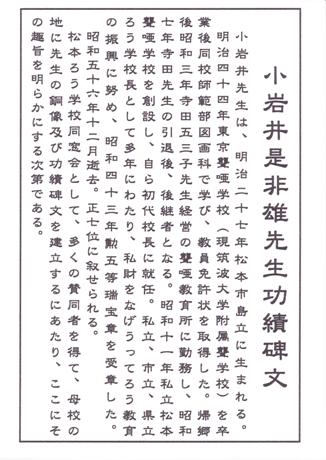 小岩井是非雄先生功績碑文
小岩井先生は、明治二十七年松本市島立に生まれる。
明治四十四年東京聾唖学校（現筑波大学附属聾学校）を卒
業後同校師範部図画科で学び、教員免許状を取得した。帰郷
後昭和三年寺田五三子先生経営の聾唖教育所に勤務し、昭和
七年寺田先生の引退後、後継者となる。昭和十一年私立松本
聾唖学校を創設し、自ら初代校長に就任。私立、市立、県立
ろう学校長として多年にわたり、私財をなげうってろう教育
の振興に努め、昭和四十三年勲五等瑞宝章を受章した。
昭和五十六年十二月逝去。正七位に叙せられる。
松本ろう学校同窓会として、多くの賛同者を得て、母校の
地に先生の銅像及び功績碑文を建立するにあたり、ここにそ
の趣旨を明らかにする次第である。